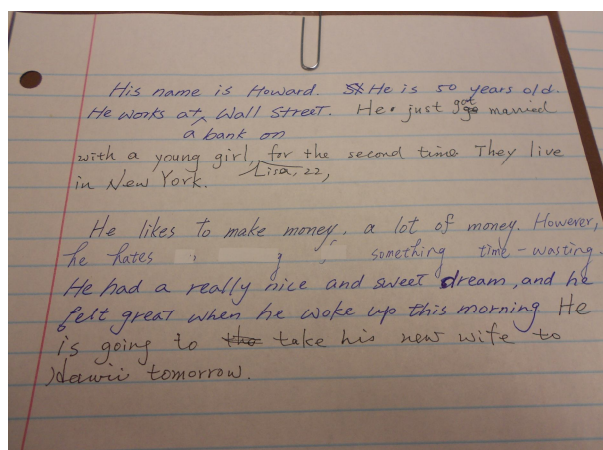 His name is Howard. He is 50 years old.
He works at Wall Street. He just got married
a bank on
with a young girl, for the second time They live
Lisa, 22,
in New York.
He likes to make money, a lot of money. However,
he hates something time-wasting.
He had a really nice and sweet dream, and he
felt great when he woke up this morning He
is going to the take his new wife to
Hawii tomorrow.